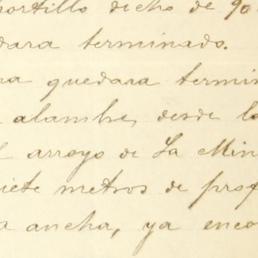 portillo dicho de 90
dara terminado.
na quedara termin
alambre, desde la
l arroyo de La Min
iete metros de prof
a ancha, ya enco